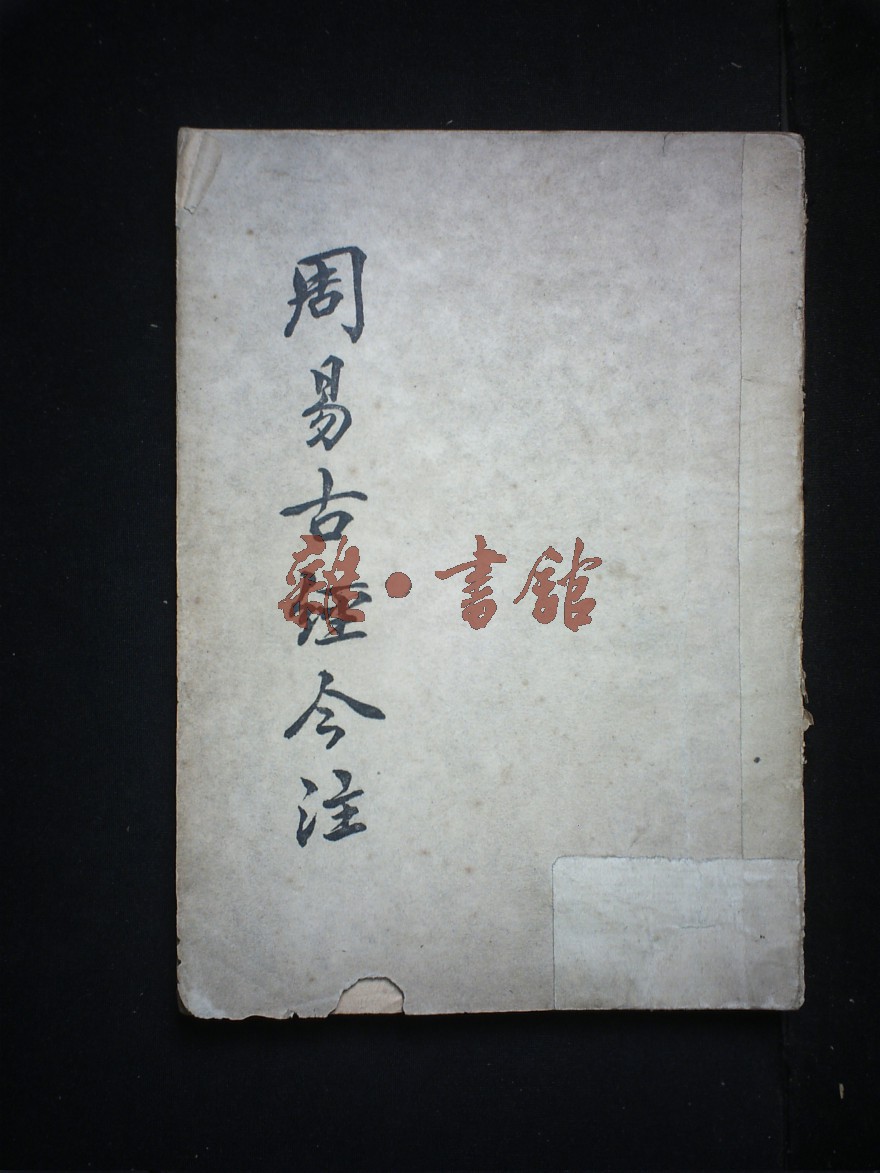 周易古經今注
雜·書館